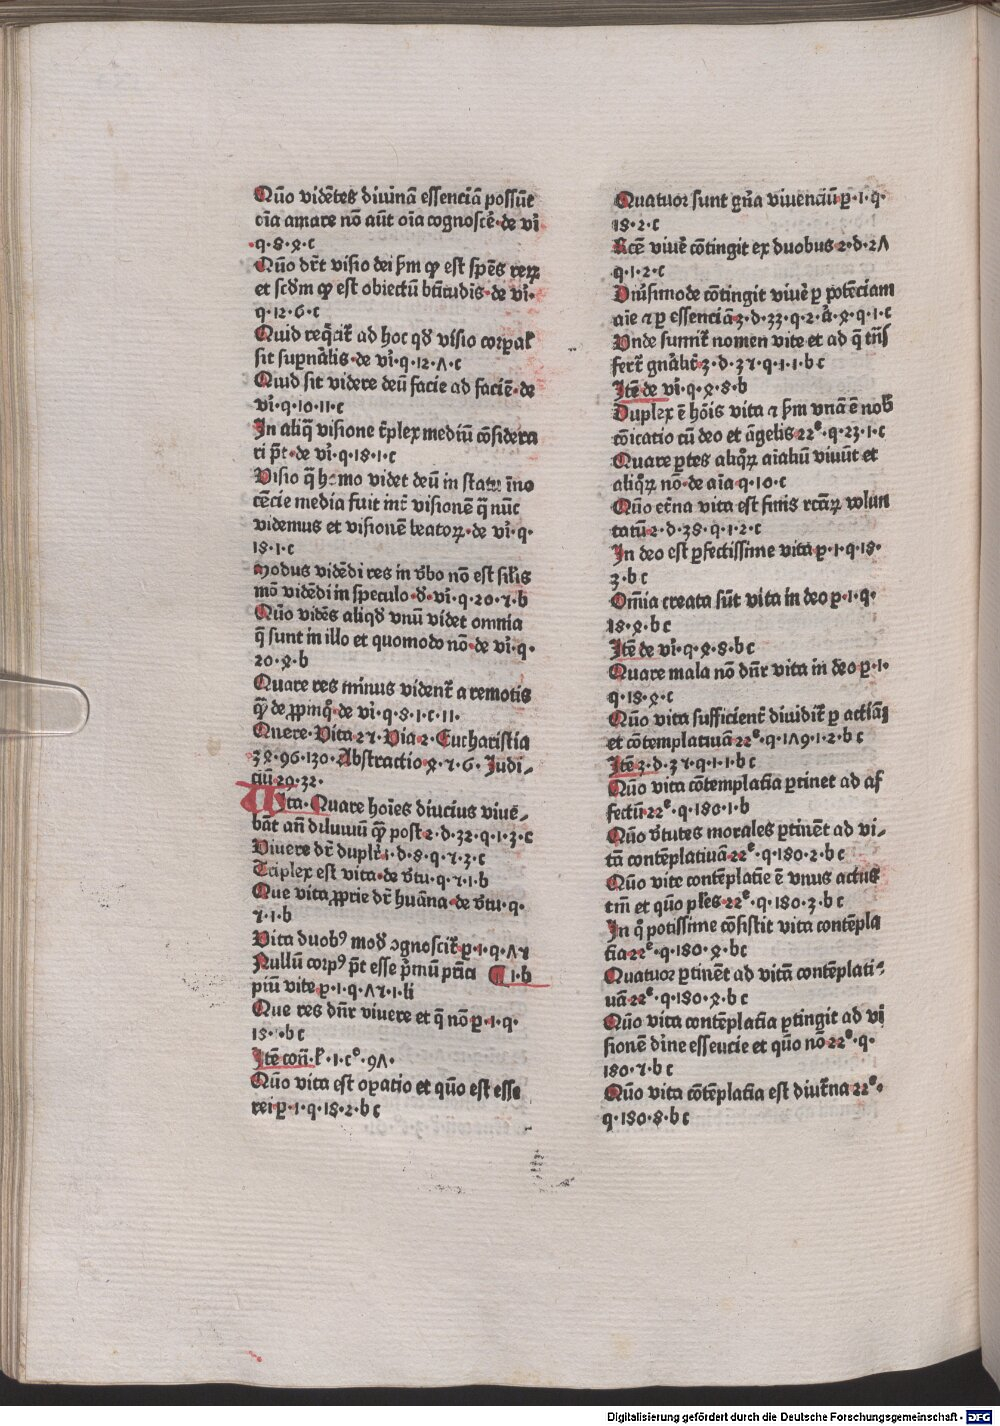 Quō vidētes diuinā essenciā possūt
oīa amare nō aūt oīa cognoscē·de vī
·q·8·ꝝ·c
Quō dr̄t visio dei ẜm ꝙ est spēs reꝝ
et scdm ꝙ est obiectū btītudis·de vī·
q·12·6·c
Quid reqͥrit̄ ad hoc qd̄ visio corpal̄
sit supnālis·de vī·q·12·Λ·c
Quid sit videre deū facie ad faciē·de
vī·q·10·11·c
In aliq̄ visione tͥplex mediū cōsidera
ri p̄t·de vī·q·18·1·c
Visio q̄ homo videt deū in statu īno
cēcie media fuit int̄ visionē q̄ nūc
videmus et visionē beatoꝝ·de vī·q·
18·1·c
Modus vidēdi res in v̄bo nō est sil̄is
mō vidēdi in speculo·d̄·vī·q·20·ꝛ·b
Quō vidēs aliqd̄ vnū videt omnia
q̄ sunt in illo et quomodo nō·de vī·q·
20·ꝝ·b
Quare res minus vident̄ a remotis
ꝙ̄ de ꝓpinqͦ·de vī·q·8·1·c·11·
Quere·Vita 2ꝛ·Via 2·Eucharistia
3ꝝ·96·130·Abstractio ꝝ·ꝛ·6·Judi-
ciū 20·32·
Vita·Quare hoīes diucius viuē-
bāt an̄ diluuiū ꝙ̄ post 2·d·32·q·1·3·c
Viuere dr̄ duplr̄ 1·d·8·q·ꝛ·3·c
Triplex est vita·de v̄tu·q·ꝛ·1·b
Que vita ꝓprie dr̄ huāna·de v̄tu·q·
ꝛ·1·b
Vita duobꝰ mod̄ ꝯgnoscit̄ ꝑ·1·q·Λꝛ
Nullū corpꝰ p̄t esse pͥmū pͥnci ¶ 1·b
piū vite ꝑ·1·q·Λꝛ·1·li
Que res dn̄r viuere et q̄ nō ꝑ·1·q·
18· ·bc
Itē con̄·ḡ·1·cͦ·9Λ·
Quō vita est oꝑatio et quō est esse
rei ꝑ·1·q·18·2·bc
Quatuor sunt gn̄a viuenciū ꝑ·1·q·
18·2·c
Rcē viuē cōtingit ex duobus 2·d·2Λ
q·1·2·c
Diuīsimode cōtingit viuē ꝑ potēciam
aīe ⁊ ꝑ essenciā 3·d·33·q·2·ā·ꝝ·q·1·c
Vnde sumit̄ nomen vite et ad q̄ trn̄s
fert̄ gnālit̄ 3·d·3ꝛ·q·1·1·bc
Itē de vī·q·ꝝ·8·b
Duplex ē hōis vita ⁊ ẜm vnā ē nob̄
cōicatio cū deo et āgelis 22ͤ·q·23·1·c
Quare ꝑtes aliqͣꝝ aīaliū viuūt et
aliqͣꝝ nō·de aīa·q·10·c
Quō et̄na vita est finis rcāꝝ volun
tatū 2·d·38·q·1·2·c
In deo est ꝑfectissime vita ꝑ·1·q·18·
3·bc
Om̄ia creata sūt vita in deo ꝑ·1·q·
18·ꝝ·bc
Itē de vī·q·ꝝ·8·bc
Quare mala nō dn̄r vita in deo ꝑ·1·
q·18·ꝝ·c
Quō vita sufficient̄ diuidit̄ ꝑ actiāꝫ
et cōtemplatiuā 22ͤ·q·1Λ9·1·2·bc
Itē 3·d·3ꝛ·q·1·1·bc
Quō vita cōtemplatīa ꝑtinet ad af
fectū 22ͤ·q·180·1·b
Quō v̄tutes morales ꝑtinēt ad vi-
tā contēplatiuā 22ͤ·q·180·2·bc
Quō vite contēplatīe ē vnus actus
tm̄ et quō pl̄es 22ͤ·q·180·3·bc
In qͦ potissime cōsistit vita contēpla
tīa 22ͤ·q·180·ꝝ·bc
Quatuor ꝑtinēt ad vitā contēplati-
uā 22ͤ·q·180·ꝝ·bc
Quō vita contēplatīa ꝑtingit ad vi
sionem dīne essencie et quō nō 22ͤ·q·
180·ꝛ·bc
Quō vita cōtēplatīa est diut̄na 22ͤ·
q·180·8·bc
Digitalisierung gefördert durch die Deutsche Forschungsgemeinschaft - DFG